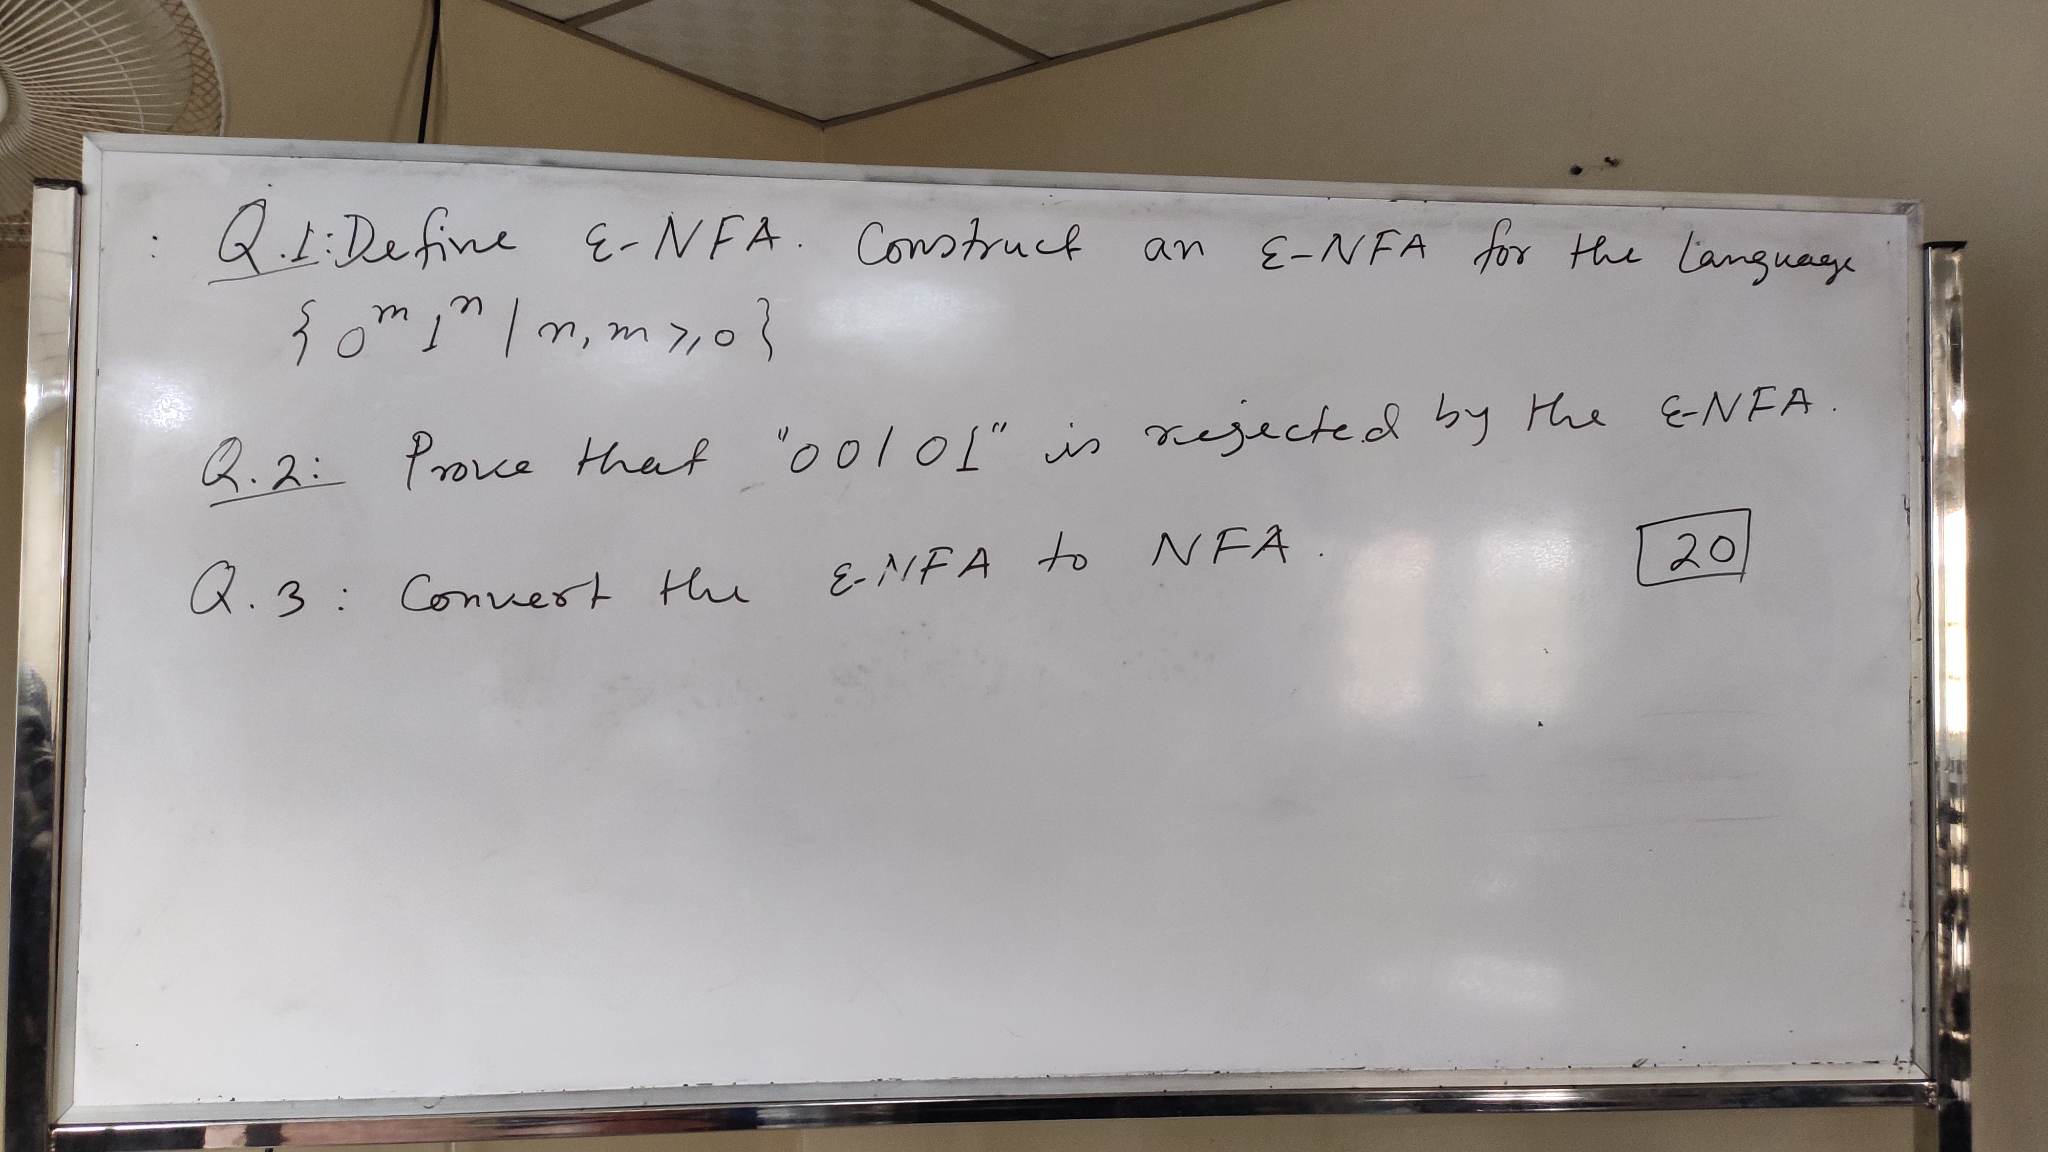 Q.1: Define ε-NFA. Construct an ε-NFA for the Language
{ 0^m 1^n | n, m ≥ 0 }
Q.2: Prove that "00101" is rejected by the ε-NFA.
Q.3: Convert the ε-NFA to NFA.
20